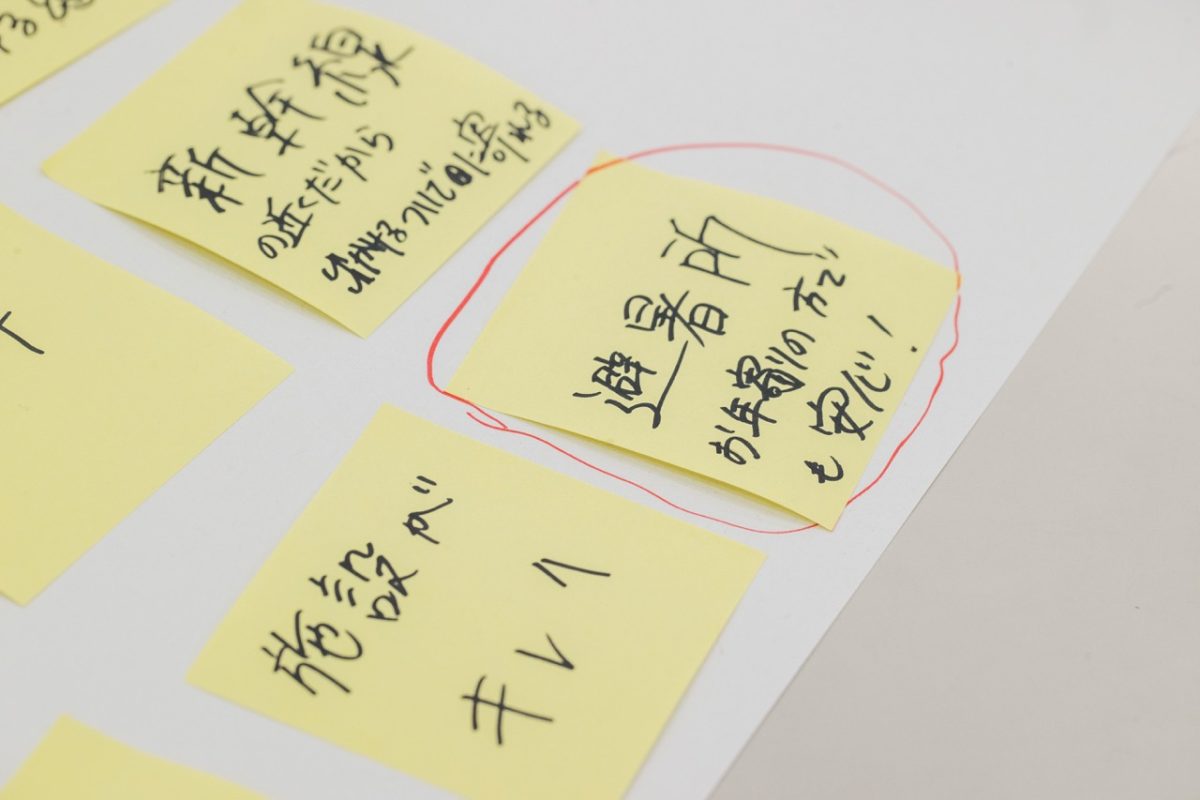 新幹線
の近くだから
出かけるついでに寄れる
避暑所
お年寄りの方で
も安心!
施設が
キレイ